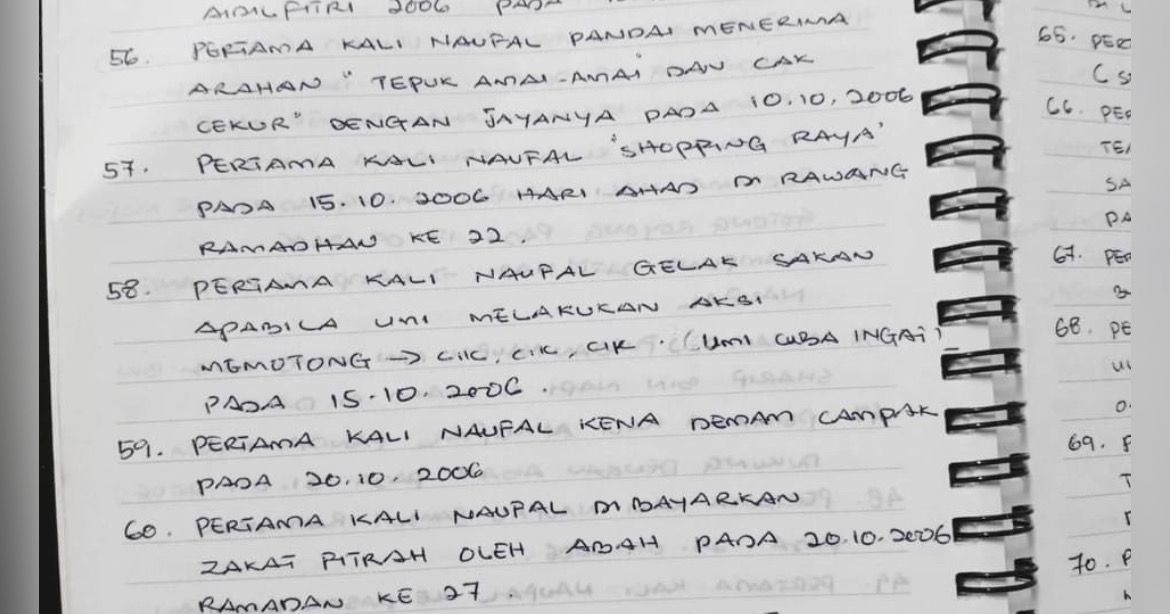 AIDILFITRI 2006 PADA
56. PERTAMA KALI NAUFAL PANDAI MENERIMA
ARAHAN " TEPUK AMAI-AMAI DAN CAK
CEKUR" DENGAN JAYANYA PADA 10.10.2006
57. PERTAMA KALI NAUFAL 'SHOPPING RAYA'
PADA 15.10.2006 HARI AHAD DI RAWANG
RAMADHAN KE 22.
58. PERTAMA KALI NAUFAL GELAK SAKAN
APABILA UMI MELAKUKAN AKSI
MEMOTONG → CIK, CIK, CIK. (UMI CUBA INGAT)
PADA 15.10.2006.
59. PERTAMA KALI NAUFAL KENA DEMAM CAMPAK
PADA 20.10.2006
60. PERTAMA KALI NAUFAL DIBAYARKAN
ZAKAT FITRAH OLEH ABAH PADA 20.10.2006
RAMADAN KE 27.
65. PER
66. PER
TE
SA
PA
67. PER
68. PE
69. P
70. P